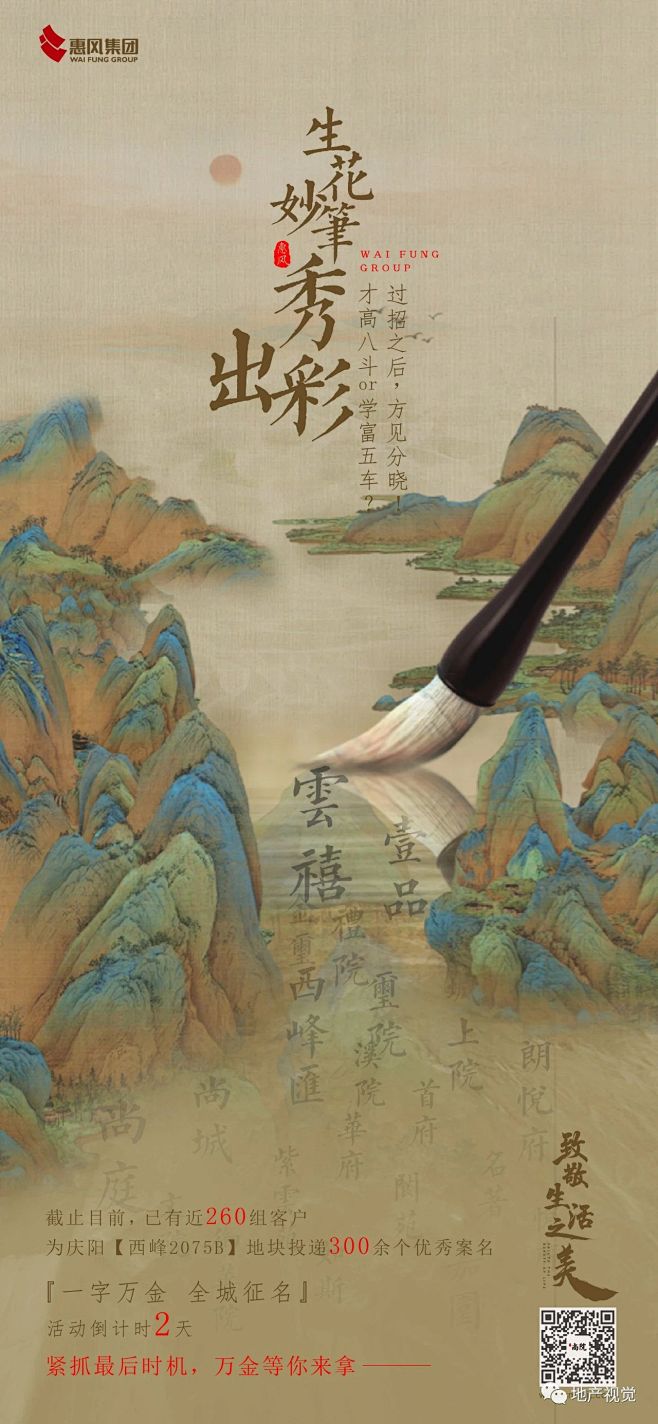 惠风集团
WAI FUNG GROUP
生花
妙筆
秀
出彩
惠风
WAI FUNG
GROUP
过招之后，方见分晓！
才高八斗or学富五车？
雲禧
壹品
禮院
西峰匯
璽院
溪院
華府
上院
首府
朗悅府
尚城
尚庭
紫雲
名著
致敬
生活
之美
截止目前，已有近260组客户
为庆阳【西峰2075B】地块投递300余个优秀案名
『一字万金 全城征名』
活动倒计时2天
紧抓最后时机，万金等你来拿——
尚院
地产视觉